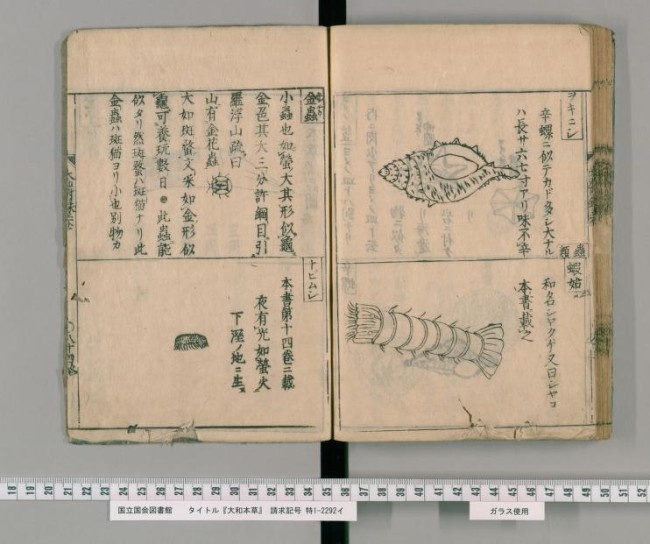 ヨキニシ
辛螺ニ似テカド多シ大ナル
ハ長サ六七寸アリ味不辛
蟲類
蝦蛄
和名シヤクゲ又曰シヤコ
本書載之
金蟲
小蟲也如螢大其形似龜
金色其大三分許綱目引
羅浮山疏曰
山有金花蟲
大如斑螫文采如金形似
龜可養玩數日 此蟲能
似タリ然斑螫ハ斑猫ナリ此
金蟲ハ斑猫ヨリ小也別物カ
トヒムシ
本書第十四卷ニ載
夜有光如螢火
下溼ノ地ニ生ス
18 19 20 21 22 23 24 25 26 27 28 29 30 31 32 33 34 35 36 37 38 39 40 41 42 43 44 45 46 47 48 49 50 51 52
国立国会図書館 タイトル『大和本草』 請求記号 特1-2292イ
ガラス使用